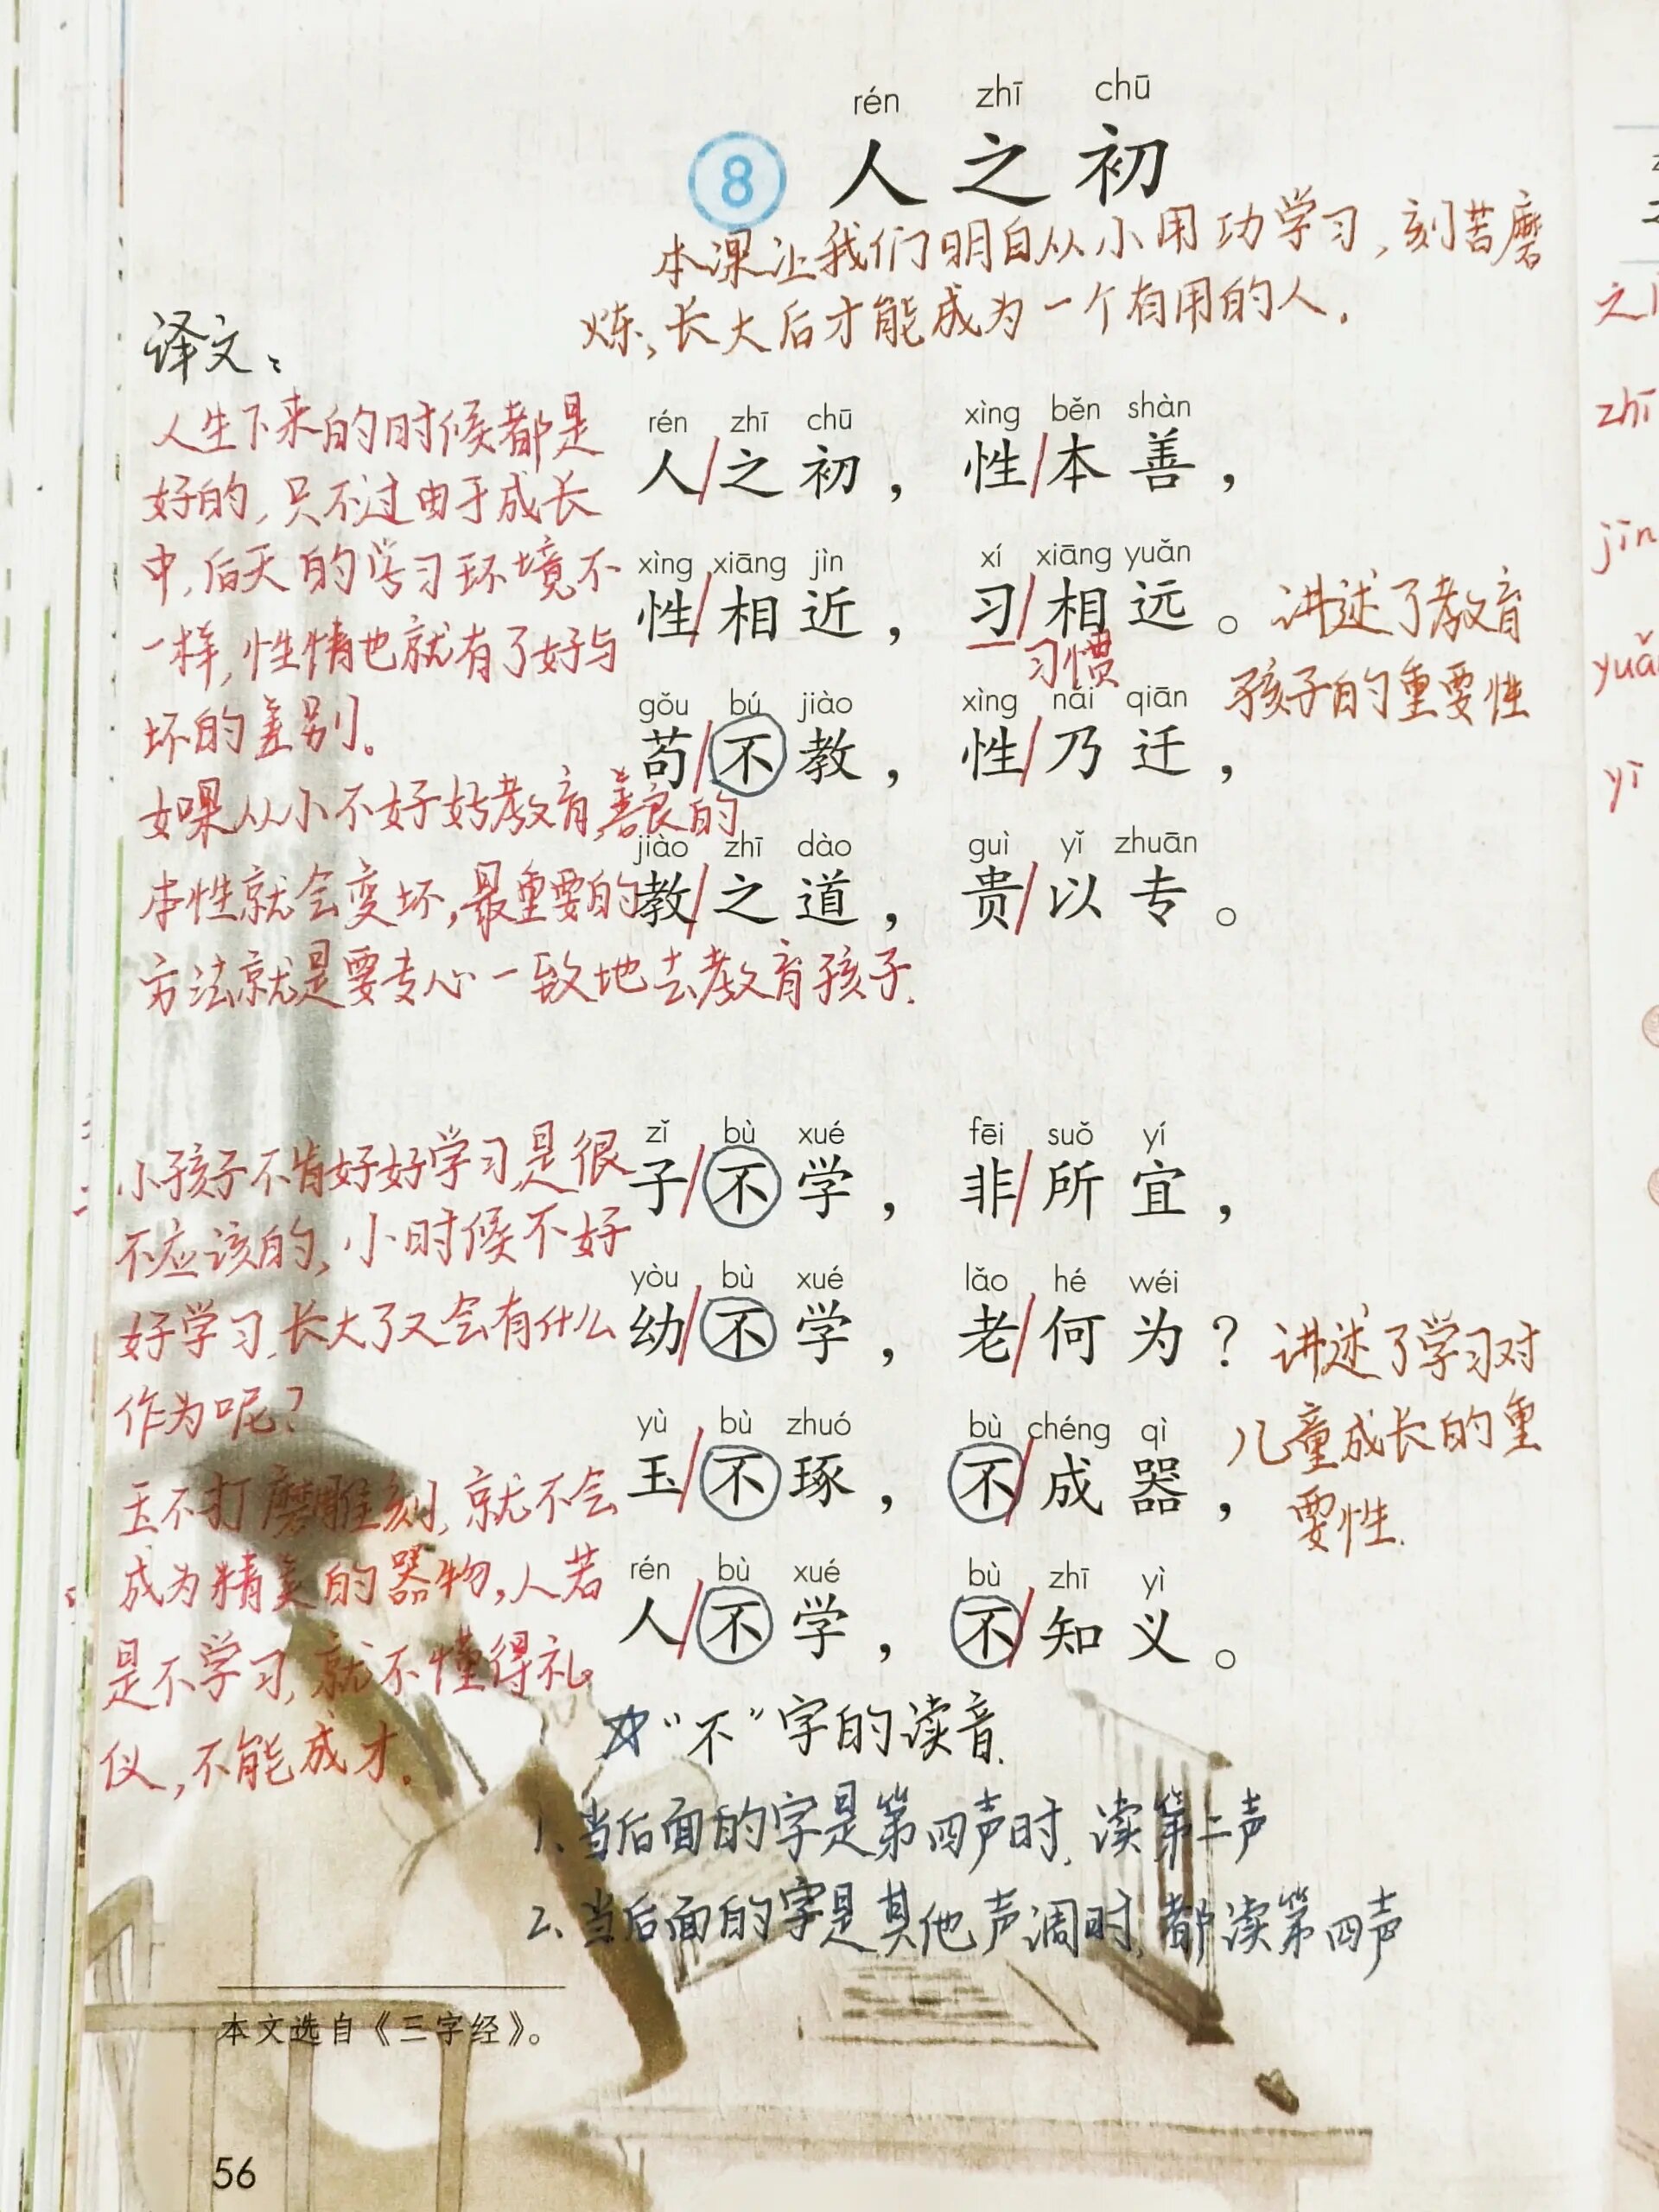 rén zhī chū
8 人之初
本课让我们明白从小用功学习，刻苦磨
炼，长大后才能成为一个有用的人。
译文：
人生下来的时候都是
好的，只不过由于成长
中，后天的学习环境不
一样，性情也就有了好与
坏的差别。
如果从小不好好教育，善良的
本性就会变坏，最重要的
方法就是要专心一致地去教育孩子.
rén zhī chū xìng běn shàn
人/之初，性/本善，
xìng xiāng jìn xí xiāng yuǎn
性/相近，习/相远。
习惯
gǒu bú jiào xìng nǎi qiān
苟/不教，性/乃迁，
jiào zhī dào guì yǐ zhuān
教/之道，贵/以专。
讲述了教育
孩子的重要性
小孩子不肯好好学习，是很
不应该的，小时候不好
好学习，长大了又会有什么
作为呢？
玉不打磨雕刻，就不会
成为精美的器物，人若
是不学习，就不懂得礼
仪，不能成才。
zǐ bù xué fēi suǒ yí
子/不学，非/所宜，
yòu bù xué lǎo hé wéi
幼/不学，老/何为？
yù bù zhuó bù chéng qì
玉/不琢，不/成器，
rén bù xué bù zhī yì
人/不学，不/知义。
讲述了学习对
儿童成长的重
要性.
☆“不”字的读音.
1、当后面的字是第四声时，读第二声
2、当后面的字是其他声调时，都读第四声
本文选自《三字经》。
56
zhī
jìn
yì